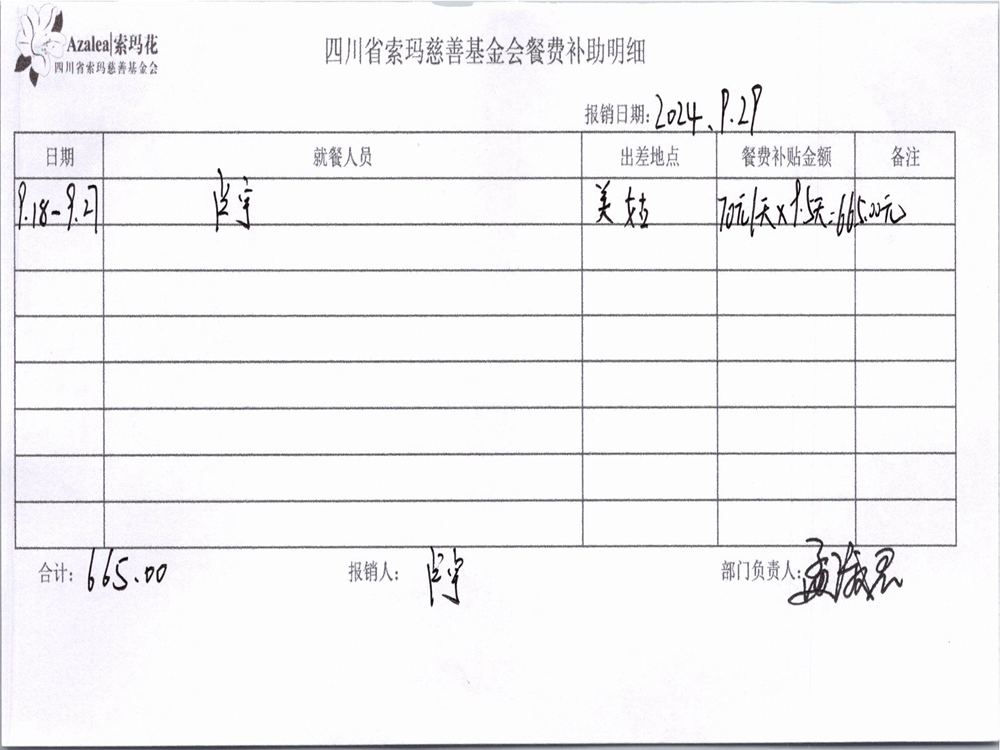 Azalea|索玛花
四川省索玛慈善基金会
四川省索玛慈善基金会餐费补助明细
报销日期：2024.9.29
日期 就餐人员 出差地点 餐费补贴金额 备注
9.18-9.27 宇 美姑 70元/天×9.5天=665.00元
合计：665.00 报销人：宇 部门负责人：孟